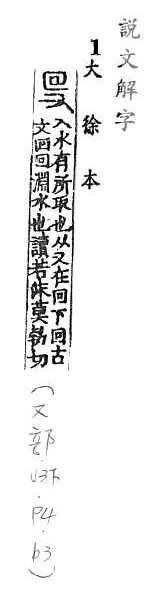 說文解字
1大徐本
入水有所取也从又在囘下囘古
文回回淵水也讀若沬莫勃切
(又部.U3下.P4.b3)